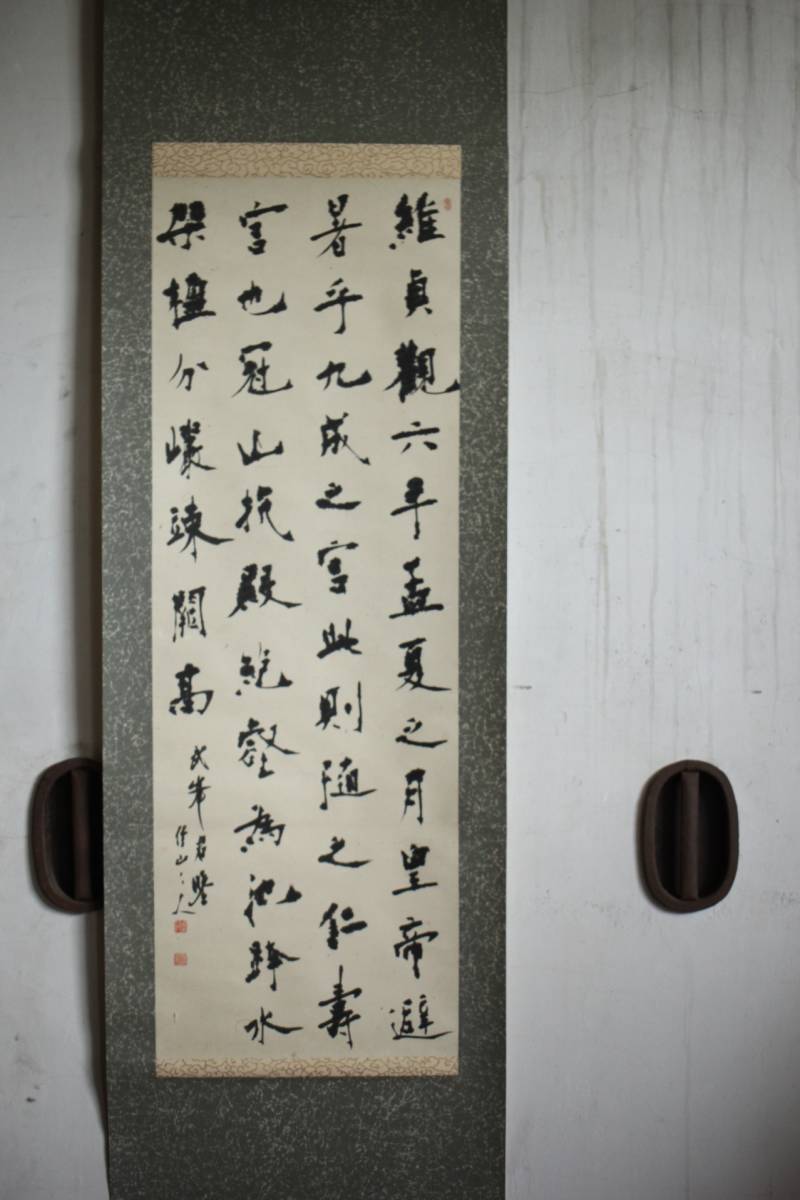 維貞觀六年孟夏之月皇帝避
暑乎九成之宮此則隨之仁壽
宮也冠山抗殿絶壑為池跨水
架楹分巖竦闕高
武峯君鑒
竹山山人